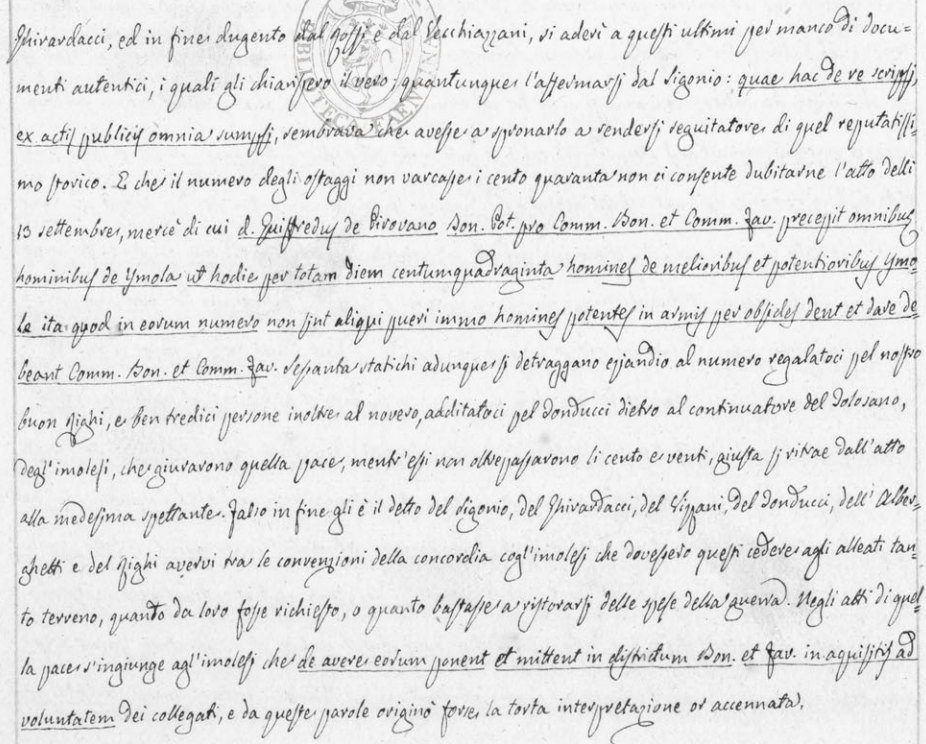 Ghirardacci, ed in fine dugento dal Rossi e dal Vecchiazzani, si aderì a questi ultimi per manco di docu-
menti autentici, i quali gli chiarissero il vero; quantunque l'affermarsi dal Sigonio: quae hac de re scripsi,
ex actis publicis omnia sumpsi, sembrava che avesse a spronarlo a rendersi seguitatore di quel reputatissi-
mo storico. E che il numero degli ostaggi non varcasse i cento quaranta non ci consente dubitarne l'atto delli
13 settembre, mercè di cui d. Guiffredus de Pirovano Bon. Pot. pro Comm. Bon. et Comm. Fav. precepit omnibus
hominibus de Ymola ut hodie per totam diem centumquadraginta homines de melioribus et potentioribus Ymo-
le ita quod in eorum numero non sint aliqui pueri immo homines potentes in armis per obsides dent et dare de-
beant Comm. Bon. et Comm. Fav. Sessanta statichi adunque si detraggano eziandio al numero regalatoci pel nostro
buon Righi, e ben tredici persone inoltre al novero, additatoci pel Tonducci dietro al continuatore del Tolosano,
degl'imolesi, che giurarono quella pace, mentr'essi non oltrepassarono li cento e venti, giusta si ritrae dall'atto
alla medesima spettante. Falso in fine gli è il detto del Sigonio, del Ghirardacci, del Vizzani, del Tonducci, dell'Alber-
ghetti e del Righi avervi tra le convenzioni della concordia cogl'imolesi che dovessero questi cedere agli alleati tan-
to terreno, quanto da loro fosse richiesto, o quanto bastasse a ristorarsi delle spese della guerra. Negli atti di quel-
la pace s'ingiunge agl'imolesi che de avere eorum ponent et mittent in districtum Bon. et Fav. in aquisitis ad
voluntatem dei collegati, e da queste parole originò forse la torta interpretazione or accennata.